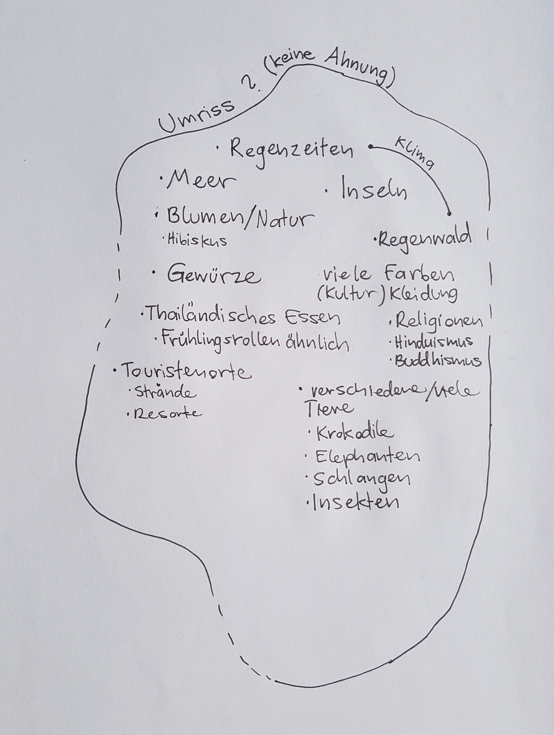 Umriss ? (keine Ahnung)
· Regenzeiten
Klima
· Meer
· Inseln
· Blumen/Natur
· Hibiskus
· Regenwald
· Gewürze
viele Farben
(Kultur) Kleidung
· Thailändisches Essen
· Frühlingsrollen ähnlich
· Religionen
· Hinduismus
· Buddhismus
· Touristenorte
· Strände
· Resorte
· verschiedene/viele
Tiere
· Krokodile
· Elephanten
· Schlangen
· Insekten